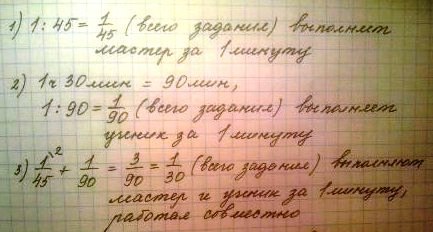 1) 1 : 45 = 1/45 (всего задания) выполняет
мастер за 1 минуту
2) 1ч 30мин = 90мин,
1 : 90 = 1/90 (всего задания) выполняет
ученик за 1 минуту
3) 1\2/45 + 1/90 = 3/90 = 1/30 (всего задания) выполняют
мастер и ученик за 1 минуту,
работая совместно